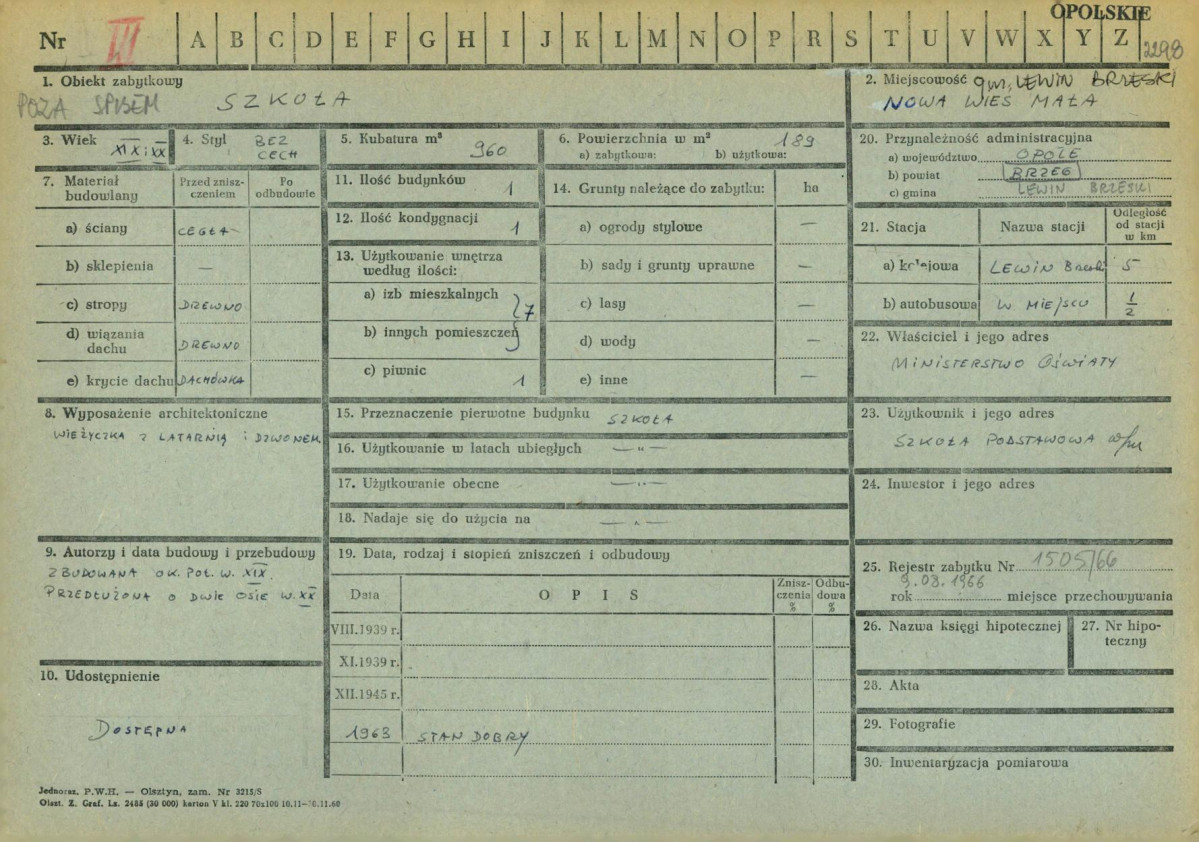 OPOLSKIE
Nr III A B C D E F G H I J K L M N O P R S T U V W X Y Z 2298
1. Obiekt zabytkowy
POZA SPISEM
SZKOŁA
2. Miejscowość gm. LEWIN BRZESKI
NOWA WIEŚ MAŁA
3. Wiek
XIX i XX
4. Styl BEZ
CECH
5. Kubatura m³
960
6. Powierzchnia w m² 189
a) zabytkowa: b) użytkowa:
7. Materiał
budowlany
Przed znisz-
czeniem
Po
odbudowie
a) ściany CEGŁA
b) sklepienia —
c) stropy DREWNO
d) wiązania
dachu DREWNO
e) krycie dachu DACHÓWKA
8. Wyposażenie architektoniczne
WIEŻYCZKA Z LATARNIĄ i DZWONEM
9. Autorzy i data budowy i przebudowy
ZBUDOWANA OK. POŁ. W. XIX.
PRZEDŁUŻONA O DWIE OSIE W. XX
10. Udostępnienie
DOSTĘPNA
11. Ilość budynków 1
12. Ilość kondygnacji 1
13. Użytkowanie wnętrza
według ilości:
a) izb mieszkalnych
7
b) innych pomieszczeń
c) piwnic 1
14. Grunty należące do zabytku: ha
a) ogrody stylowe —
b) sady i grunty uprawne —
c) lasy —
d) wody —
e) inne —
15. Przeznaczenie pierwotne budynku SZKOŁA
16. Użytkowanie w latach ubiegłych —"—
17. Użytkowanie obecne —"—
18. Nadaje się do użycia na —"—
19. Data, rodzaj i stopień zniszczeń i odbudowy
Data
O P I S
Znisz-
czenia
%
Odbu-
dowa
%
VIII.1939 r.
XI.1939 r.
XII.1945 r.
1963 STAN DOBRY
20. Przynależność administracyjna
a) województwo OPOLE
b) powiat BRZEG
c) gmina LEWIN BRZESKI
21. Stacja
Nazwa stacji
Odległość
od stacji
w km
a) kolejowa LEWIN Brzeski 5
b) autobusowa W MIEJSCU 1/2
22. Właściciel i jego adres
MINISTERSTWO OŚWIATY
23. Użytkownik i jego adres
SZKOŁA PODSTAWOWA
24. Inwestor i jego adres
25. Rejestr zabytku Nr 1505/66
9.08.1966
rok miejsce przechowywania
26. Nazwa księgi hipotecznej
27. Nr hipo-
teczny
28. Akta
29. Fotografie
30. Inwentaryzacja pomiarowa
Jednoraz. P.W.H. — Olsztyn, zam. Nr 3215/S
Olszt. Z. Graf. Lz. 2485 (30 000) karton V kl. 220 70x100 10.11—30.11.60